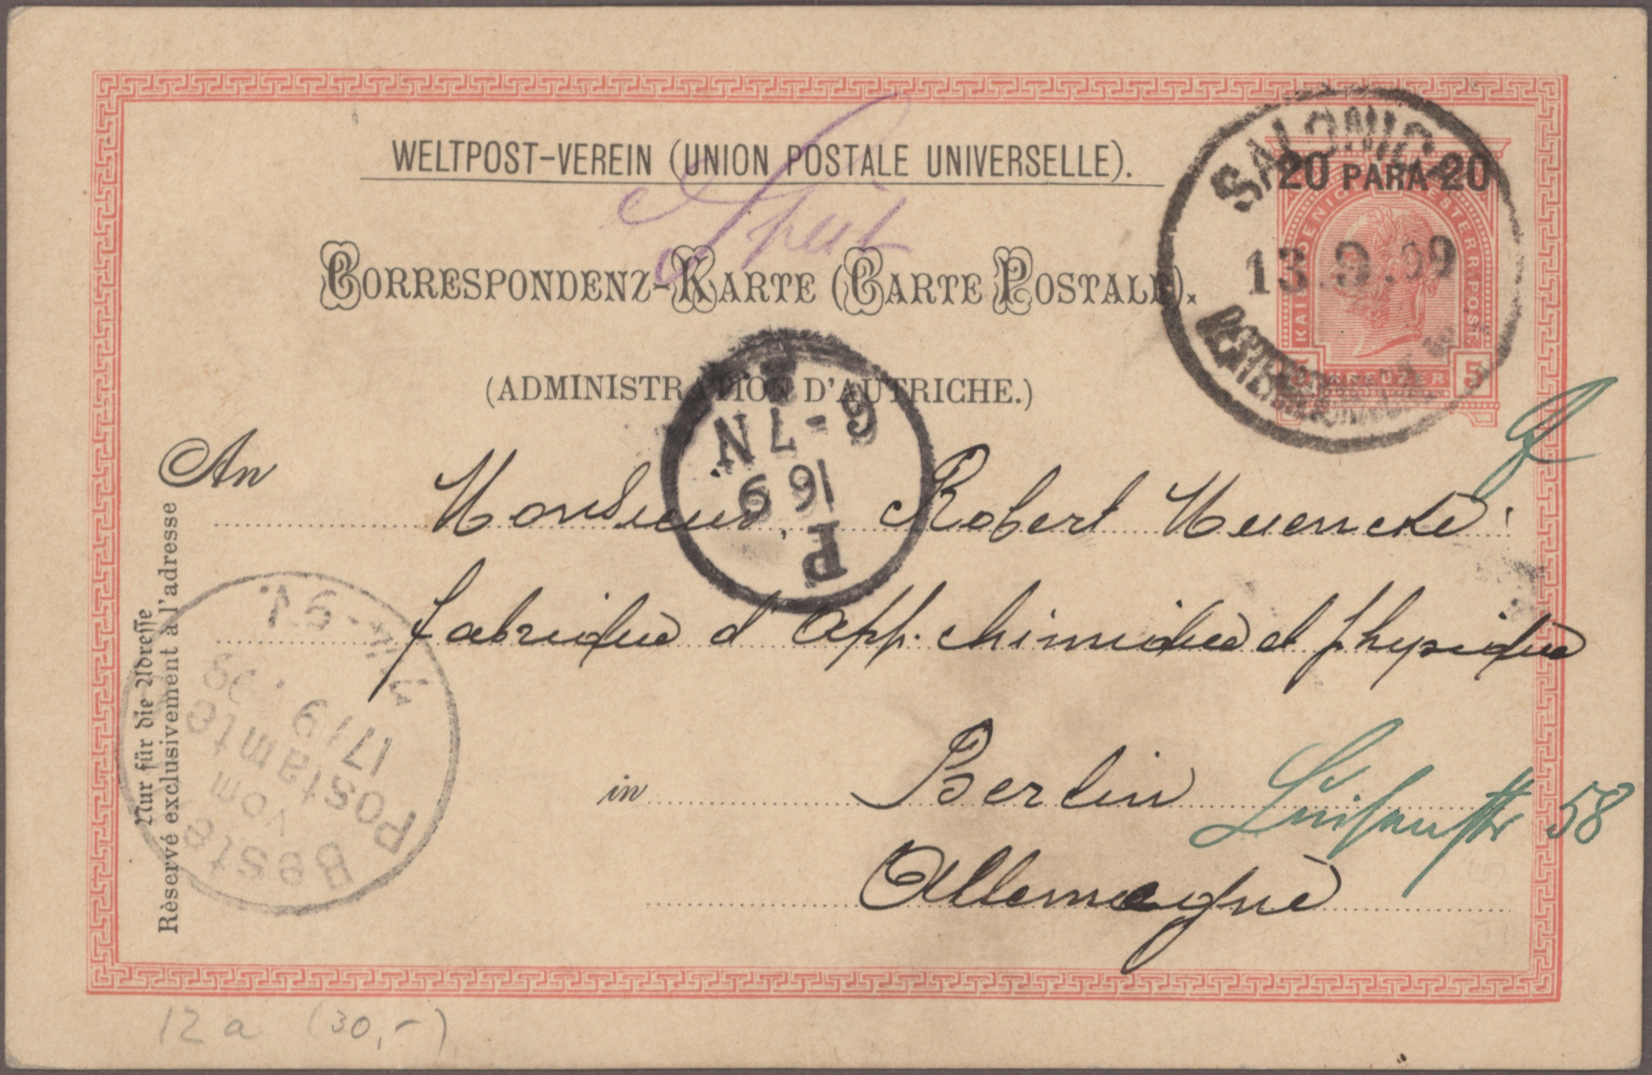 WELTPOST-VEREIN (UNION POSTALE UNIVERSELLE).
CORRESPONDENZ-KARTE (CARTE POSTALE).
(ADMINISTRATION D'AUTRICHE.)
20 PARA 20
SALONICH
13.9.99
KREUZER 5
An
Monsieur Robert Muencke
fabrique d'App. chimique et physique
in
Berlin
Luisenstr 58
Allemagne
Nur für die Adresse
Rèservé exclusivement à l'adresse
6-7N.
16 9
P
Bestellt
vom
Postamte
17/9.99
12a (30,-)